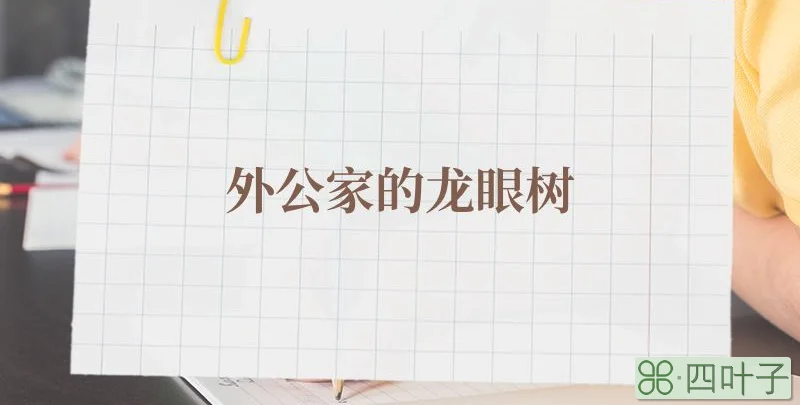 外公家的龙眼树
⌘·四叶子